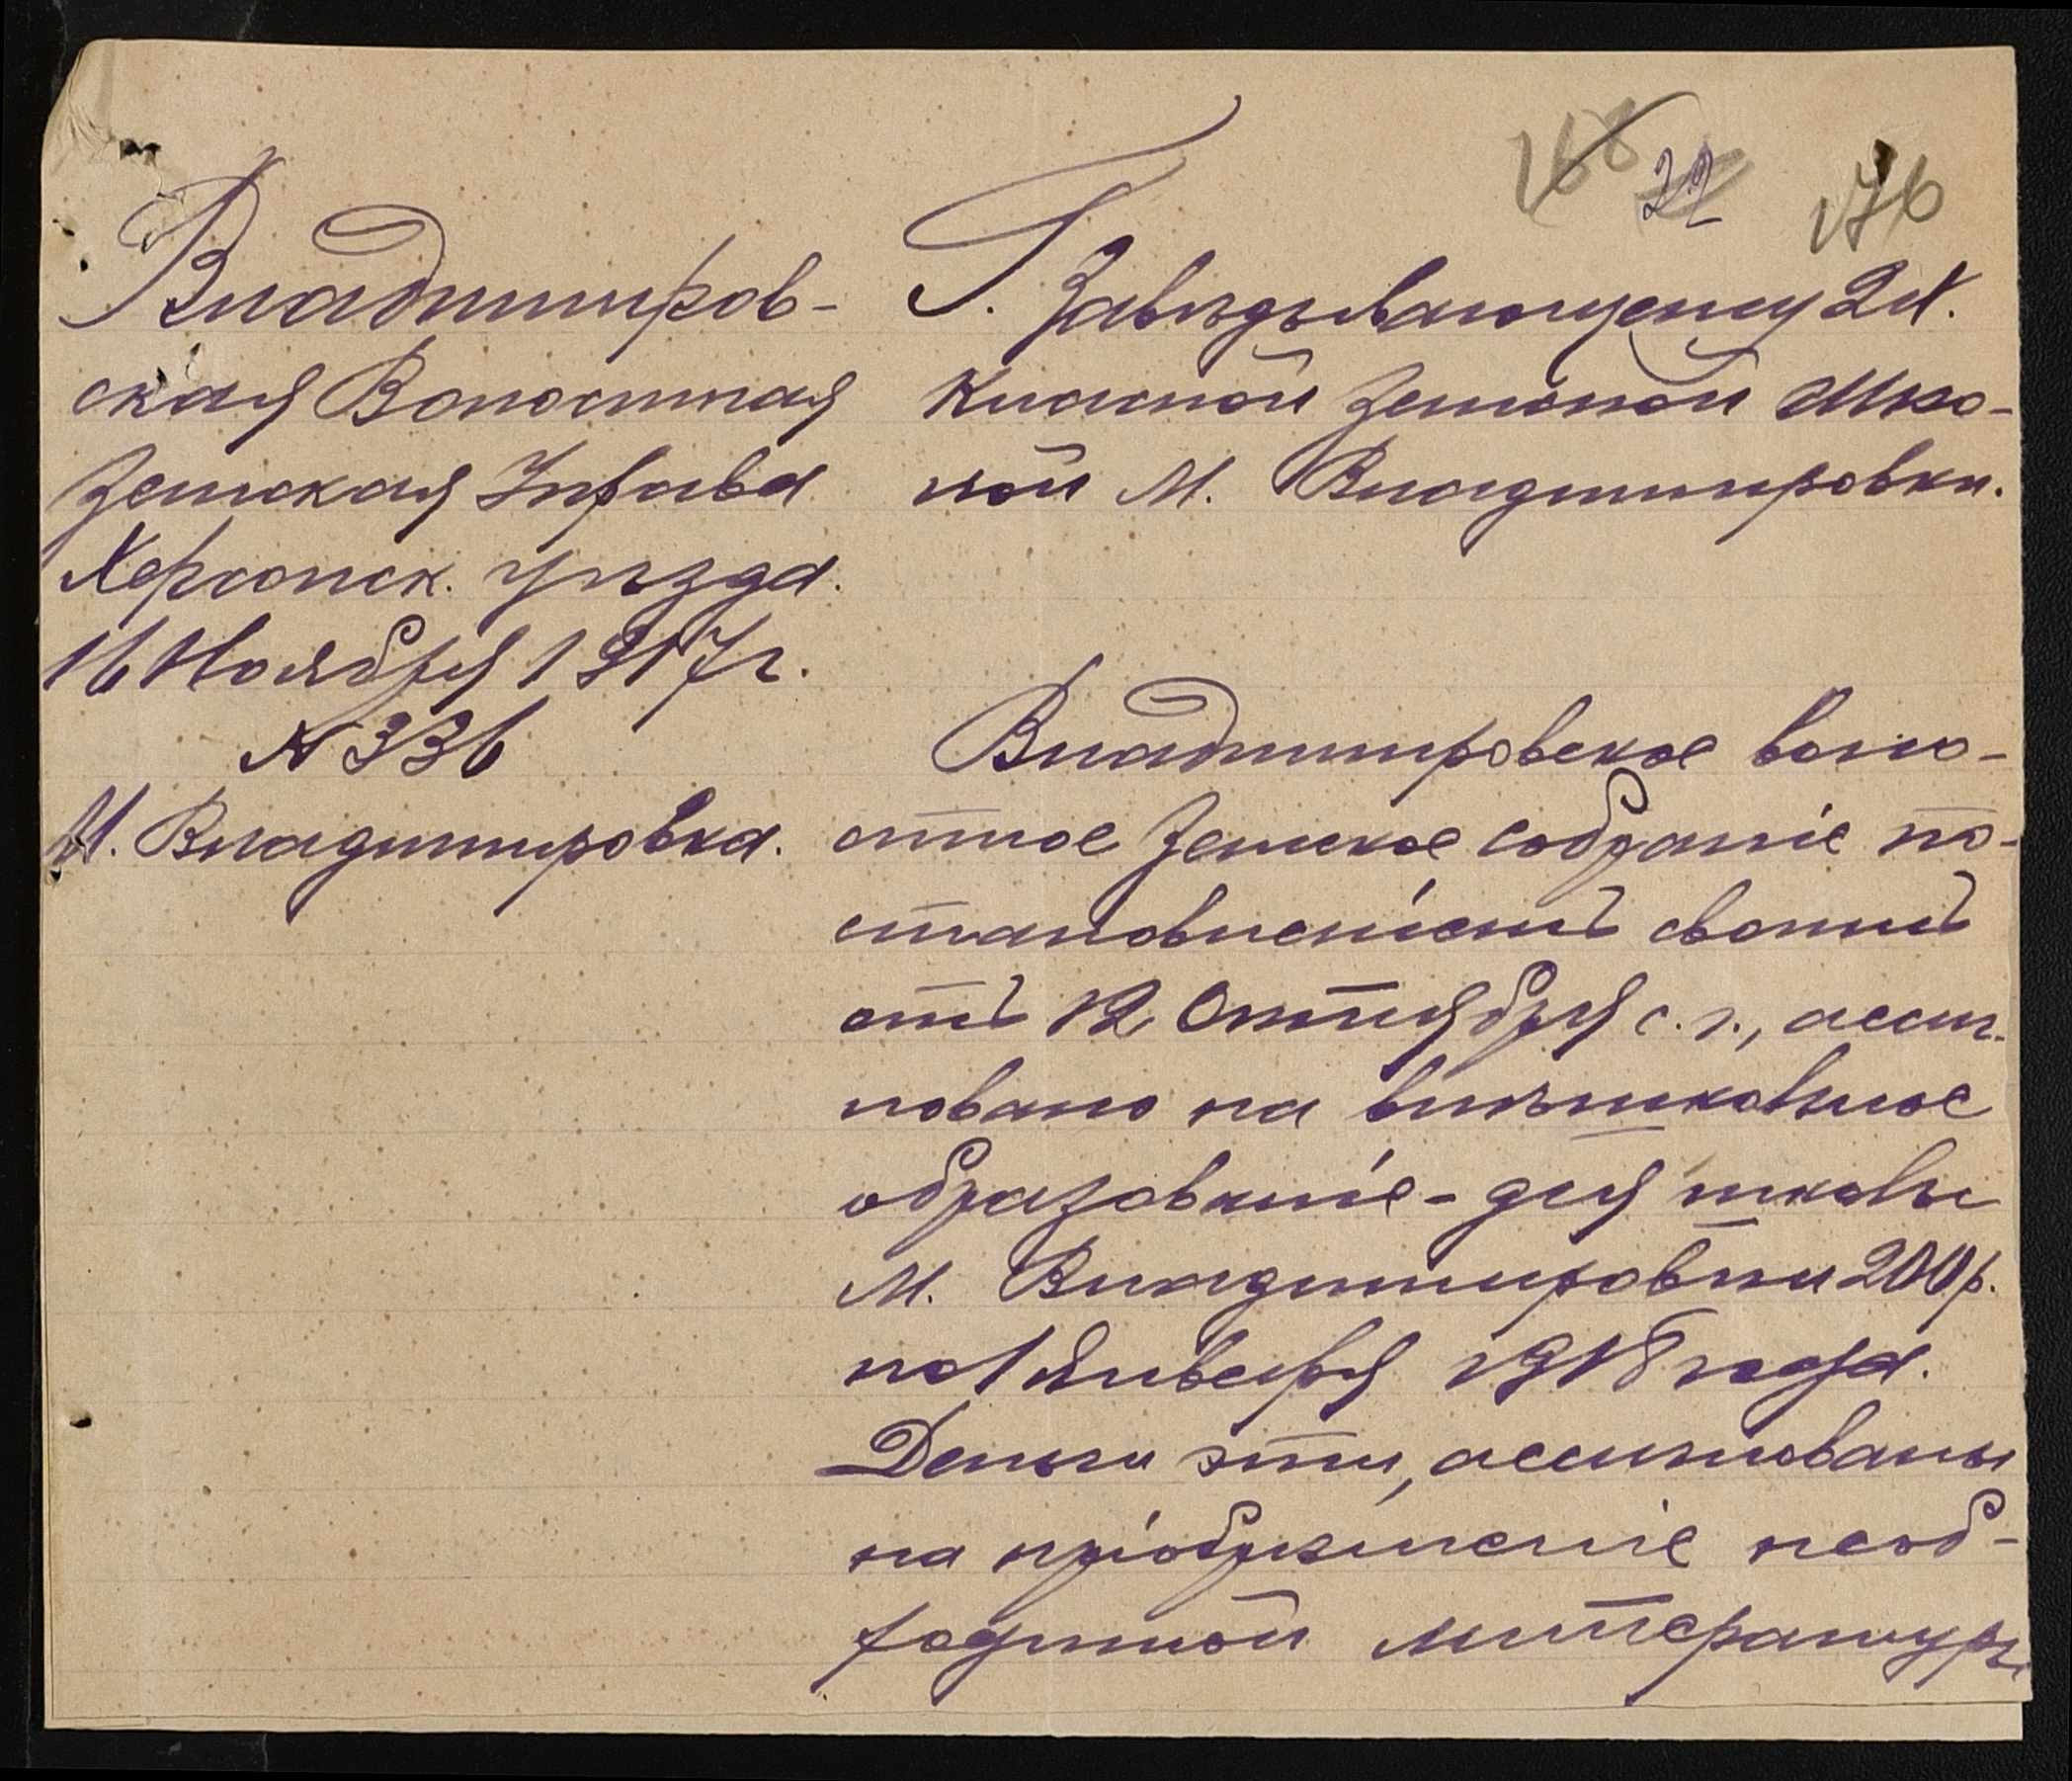 168 22 176
Владиміров-
ская Волостная
Земская Управа
Херсонск. уѣзда.
16 Ноября 1917 г.
№ 336
М. Владимировка.
Г. Завѣдывающему 2х.
Класной Земской Шко-
лой М. Владимировки.
Владимировское воло-
стное Земское собраніе по-
становленіемъ своимъ
отъ 12 Октября с. г., ассиг-
новано на внѣшкольное
образованіе - для школы
М. Владимировки 200 р.
по 1 Января 1918 года.
Деньги эти, ассигнованы
на пріобрѣтеніе необ-
ходимой литературы